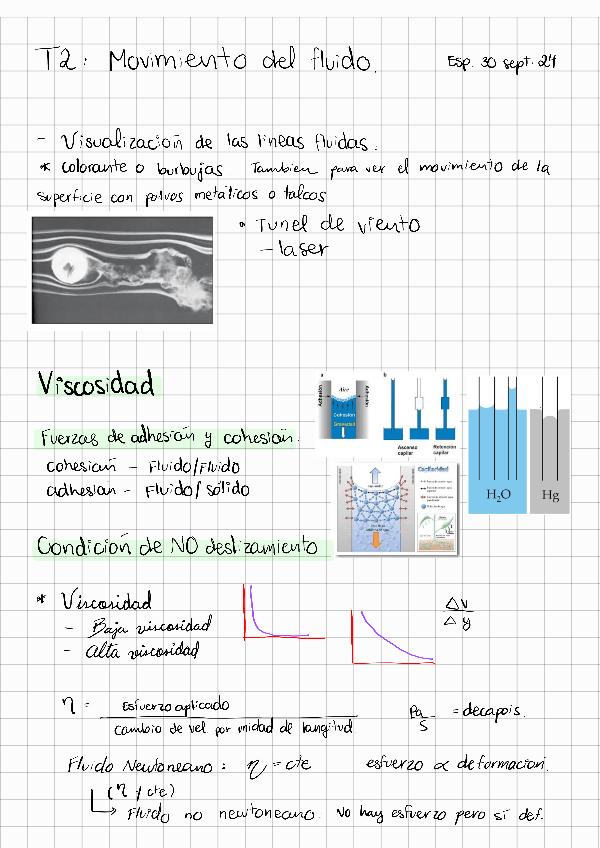 T2: Movimiento del fluido.
Esp. 30 sept. 24
- Visualización de las líneas fluidas.
* colorante o burbujas Tambien para ver el movimiento de la
superficie con polvos metálicos o talcos
* Tunel de viento
- laser
Viscosidad
a
b
Adhesión
Aire
Adhesión
Cohesión
Gravedad
Ascenso
capilar
Retención
capilar
Capilaridad
H₂O
Hg
Fuerzas de adhesión y cohesión.
cohesión - Fluido/Fluido
adhesion - Fluido/sólido
Condición de NO deslizamiento
* Viscosidad
- Baja viscosidad
- Alta viscosidad
ΔV
Δy
η = Esfuerzo aplicado
cambio de vel por unidad de longitud
Pa
S
= decapois.
Fluido Newtoneano: η = cte
esfuerzo ∝ deformacion.
Fluido no newtoneano. No hay esfuerzo pero sí def.